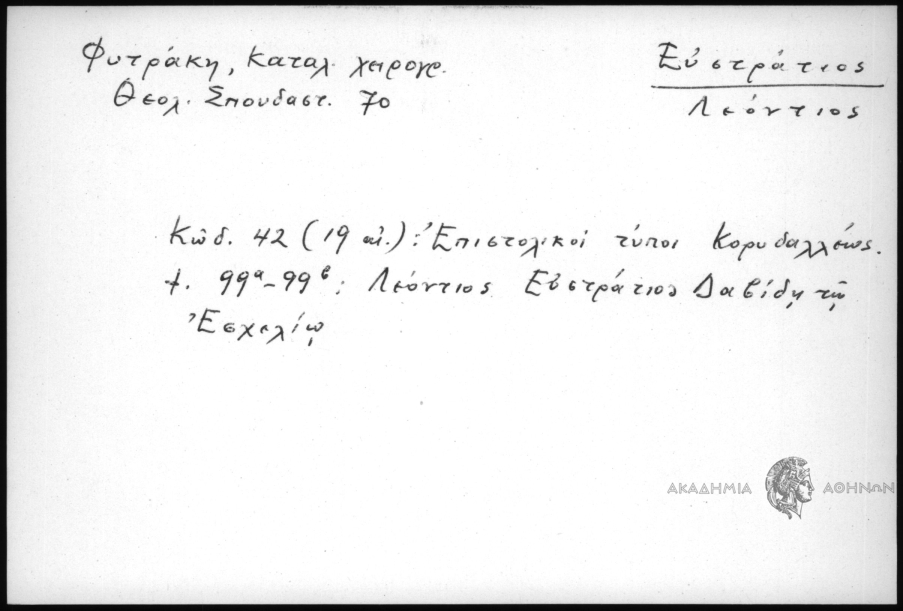 Φυτράκη, Καταλ. χειρογρ.
Θεολ. Σπουδαστ. 70
Εὐστράτιος
Λεόντιος
Κῶδ. 42 (19 αἰ.): Ἐπιστολικοί τύποι Κορυδαλλέως.
f. 99α-99β: Λεόντιος Εὐστράτιος Δαβίδῃ τῷ
Ἐσχελίῳ
ΑΚΑΔΗΜΙΑ ΑΘΗΝΩΝ